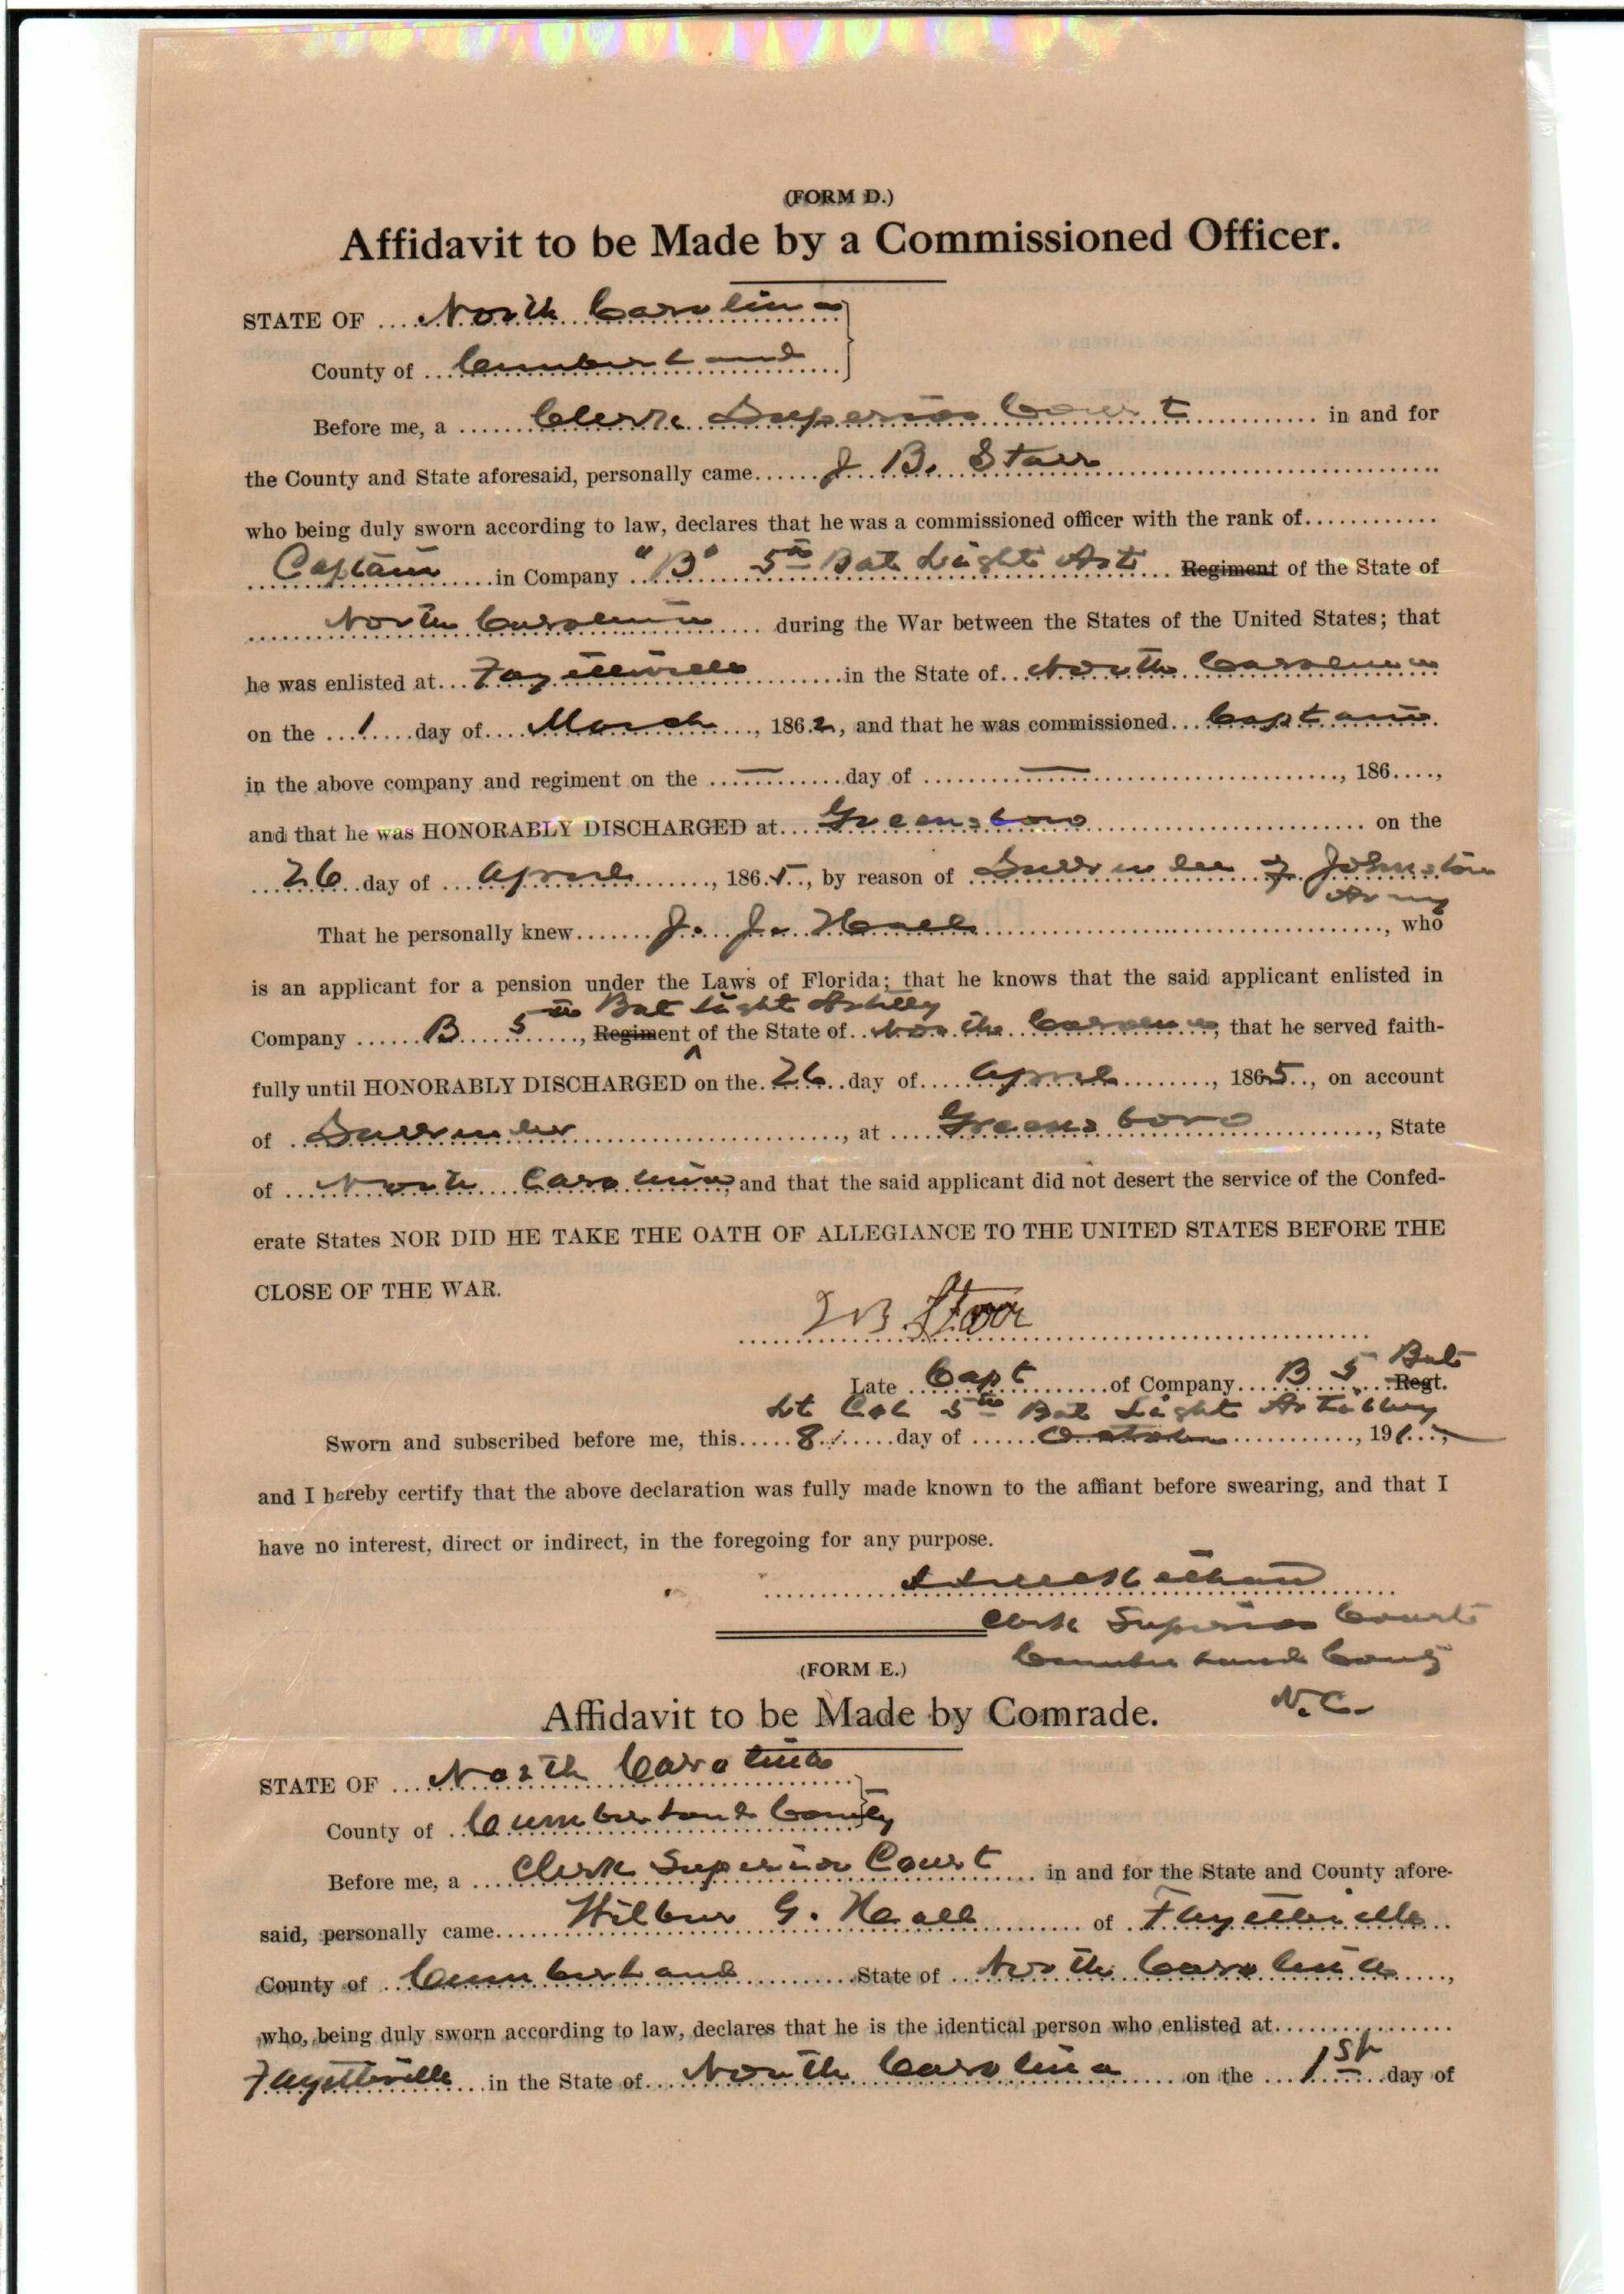 (FORM D.)
Affidavit to be Made by a Commissioned Officer.
STATE OF .... North Carolina
County of ... Cumberland
Before me, a ...... Clerk Superior Court ............ in and for
the County and State aforesaid, personally came...... J B. Starr ......
who being duly sworn according to law, declares that he was a commissioned officer with the rank of............
Captain ......in Company "B" 5th Bat Light Art ... Regiment of the State of
...... North Carolina .... during the War between the States of the United States; that
he was enlisted at... Fayetteville ..........in the State of... North Carolina
on the ...1....day of.... March ..., 186.2., and that he was commissioned... Captain .
in the above company and regiment on the ...—......day of ......—......, 186....,
and that he was HONORABLY DISCHARGED at.... Greensboro ...... on the
...26..day of ... April ......, 186.5.., by reason of Surrender of Johnston
Army
That he personally knew....... J. J. Hall ......, who
is an applicant for a pension under the Laws of Florida; that he knows that the said applicant enlisted in
th Bat Light Artillery
Company ...... B ... 5 ....., Regiment of the State of.. North Carolina, that he served faith-
fully until HONORABLY DISCHARGED on the.26..day of.... April ........, 1865.., on account
of .. Surrender ......, at ..... Greensboro ............, State
of .... North Carolina, and that the said applicant did not desert the service of the Confed-
erate States NOR DID HE TAKE THE OATH OF ALLEGIANCE TO THE UNITED STATES BEFORE THE
CLOSE OF THE WAR.
J B Starr
Late .. Capt ..........of Company.... B 5 Bat ..Regt.
Lt Col 5th Bat Light Artillery
Sworn and subscribed before me, this.....8......day of ...... October ............, 191...,
and I hereby certify that the above declaration was fully made known to the affiant before swearing, and that I
have no interest, direct or indirect, in the foregoing for any purpose.
Clerk Superior Court
Cumberland County
N.C.
(FORM E.)
Affidavit to be Made by Comrade.
STATE OF .... North Carolina
County of .. Cumberland County
Before me, a .... Clerk Superior Court .... in and for the State and County afore-
said, personally came....... Wilbur G. Hall ......... of . Fayetteville ..
County of .. Cumberland ..........State of ... North Carolina .....,
who, being duly sworn according to law, declares that he is the identical person who enlisted at................
Fayetteville ...in the State of.... North Carolina ...... on the ...1st...day of